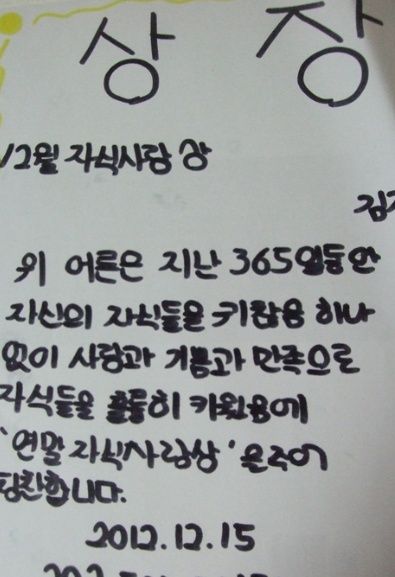 상 장
12월 자식사랑 상
김
위 어른은 지난 365일동안
자신의 자식들을 귀찮음 하나
없이 사랑과 기쁨과 만족으로
자식들을 훌륭히 키웠음에
'연말 자식사랑상'을 주어
칭찬합니다.
2012.12.15